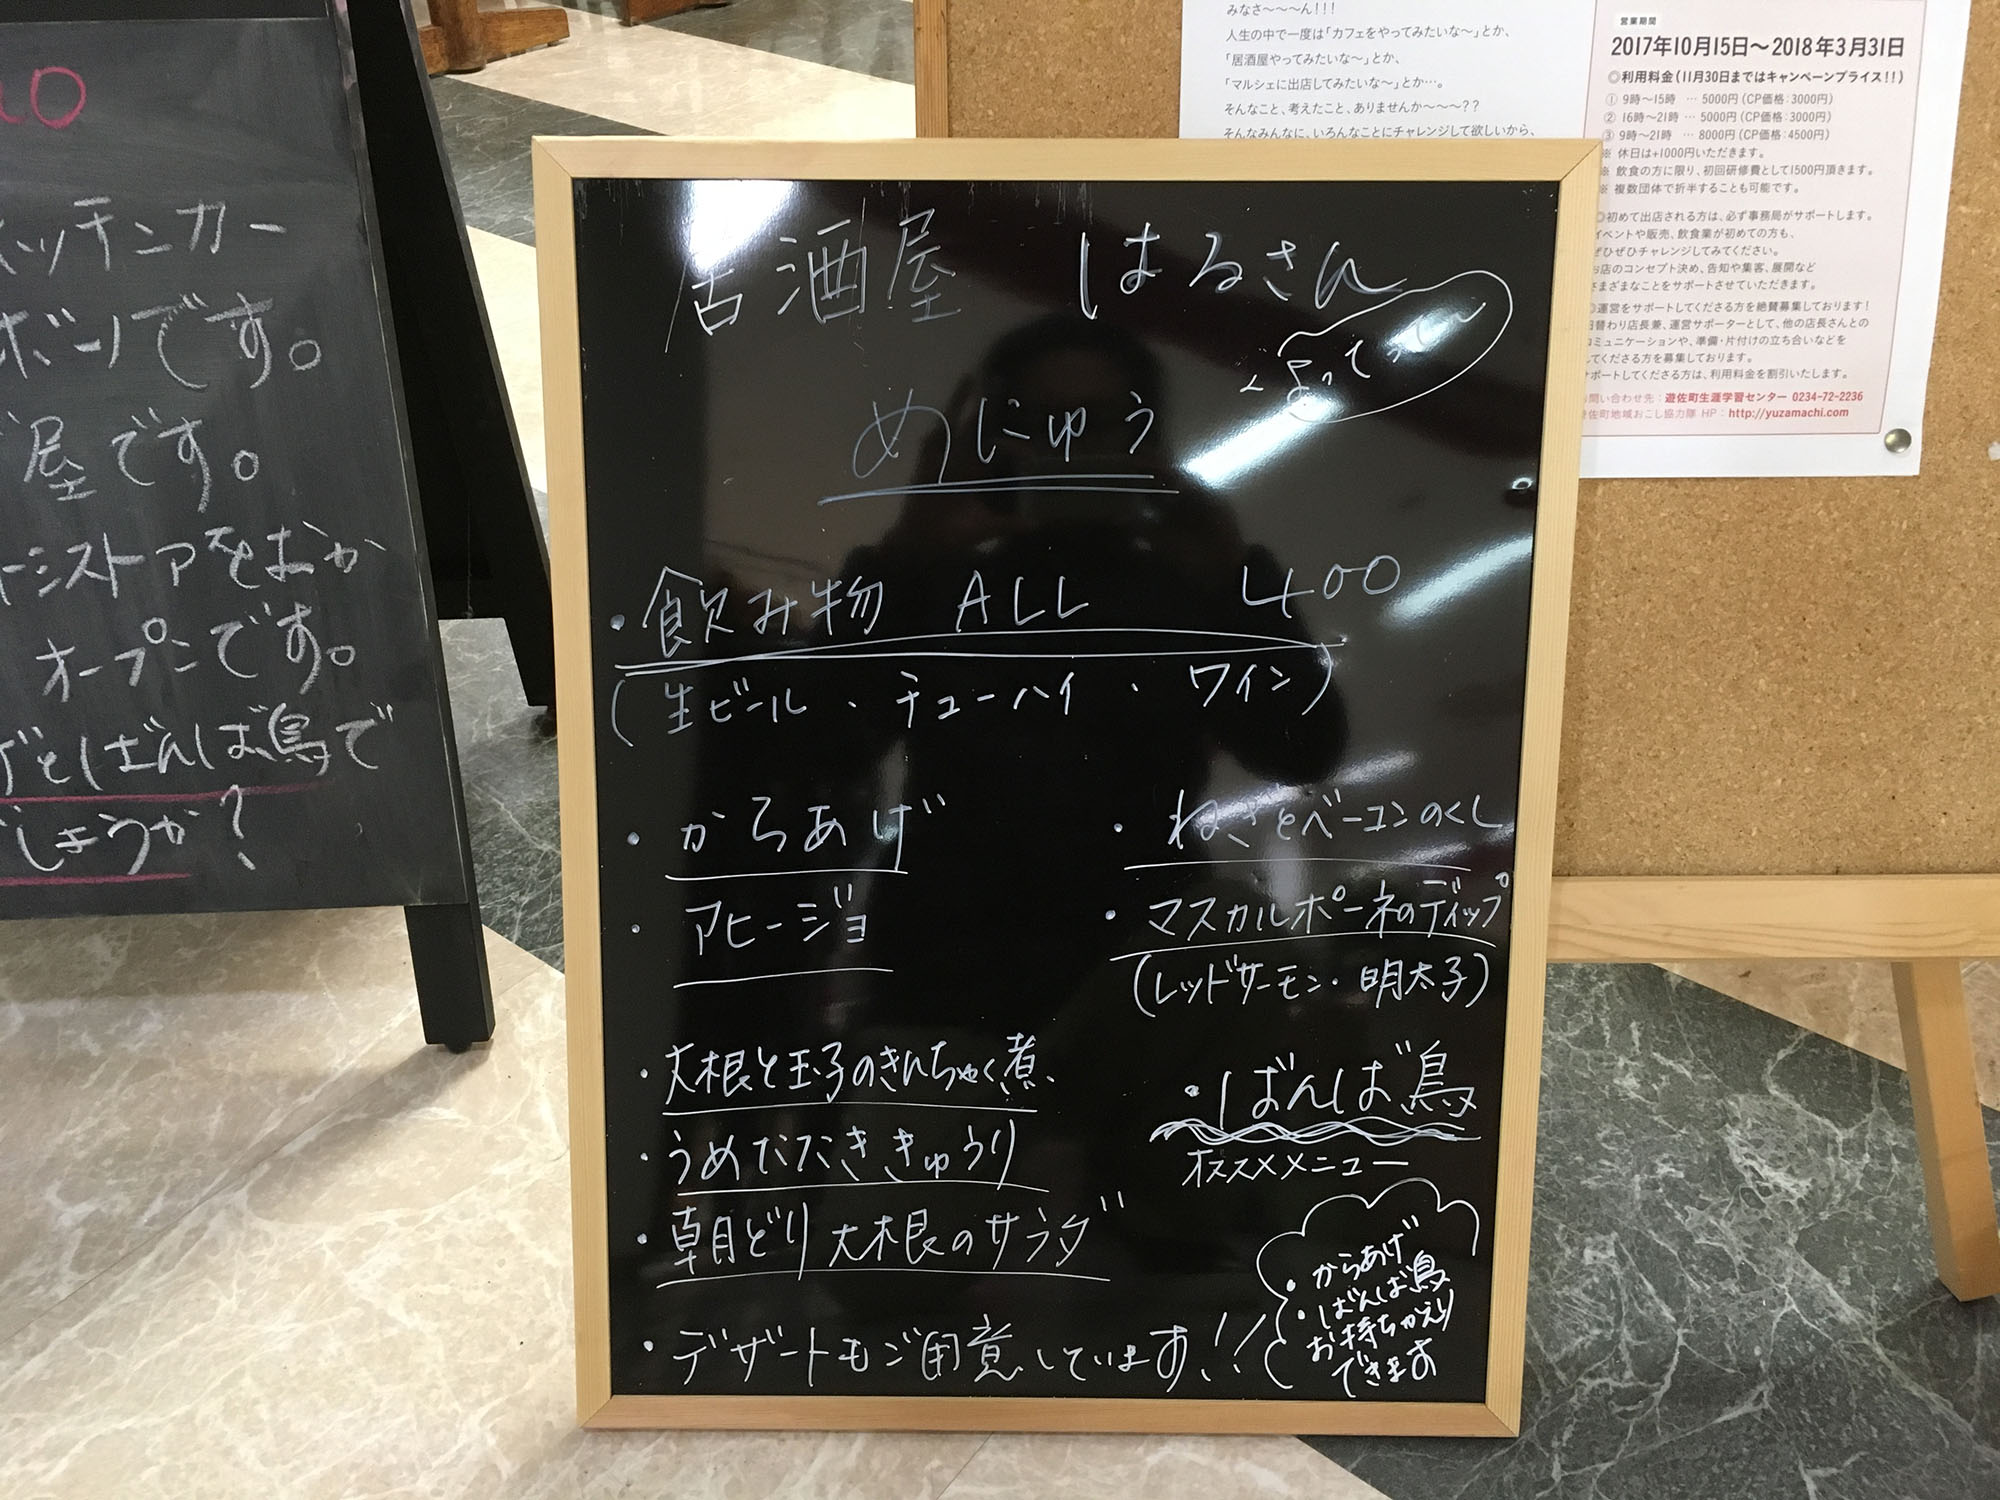 居酒屋 はるさん
よってってー
めにゅう
・飲み物 ALL 400
(生ビール・チューハイ・ワイン)
・からあげ
・アヒージョ
・大根と玉子のきんちゃく煮
・うめたたききゅうり
・朝どり大根のサラダ
・デザートもご用意しています!!
・ねぎとベーコンのくし
・マスカルポーネのディップ
(レッドサーモン・明太子)
・ばんば鳥
オススメメニュー
・からあげ
・ばんば鳥
お持ちかえり
できます
キッチンカー
ボンです。
屋です。
オープンです。
しょうか?
みなさ〜〜〜ん!!!
人生の中で一度は「カフェをやってみたいな〜」とか、
「居酒屋やってみたいな〜」とか、
「マルシェに出店してみたいな〜」とか…。
そんなこと、考えたこと、ありませんか〜〜〜??
そんなみんなに、いろんなことにチャレンジして欲しいから、
営業期間
2017年10月15日〜2018年3月31日
◎利用料金(11月30日まではキャンペーンプライス!!)
① 9時〜15時 … 5000円(CP価格:3000円)
② 16時〜21時 … 5000円(CP価格:3000円)
③ 9時〜21時 … 8000円(CP価格:4500円)
※ 休日は+1000円いただきます。
※ 飲食の方に限り、初回研修費として1500円頂きます。
※ 複数団体で折半することも可能です。
◎初めて出店される方は、必ず事務局がサポートします。
イベントや販売、飲食業が初めての方も、
ぜひぜひチャレンジしてみてください。
お店のコンセプト決め、告知や集客、展開など
さまざまなことをサポートさせていただきます。
◎運営をサポートしてくださる方を絶賛募集しております!
日替わり店長兼、運営サポーターとして、他の店長さんとの
コミュニケーションや、準備・片付けの立ち合いなどを
してくださる方を募集しております。
サポートしてくださる方は、利用料金を割引いたします。
お問い合わせ先:遊佐町生涯学習センター 0234-72-2236
遊佐町地域おこし協力隊 HP:http://yuzamachi.com